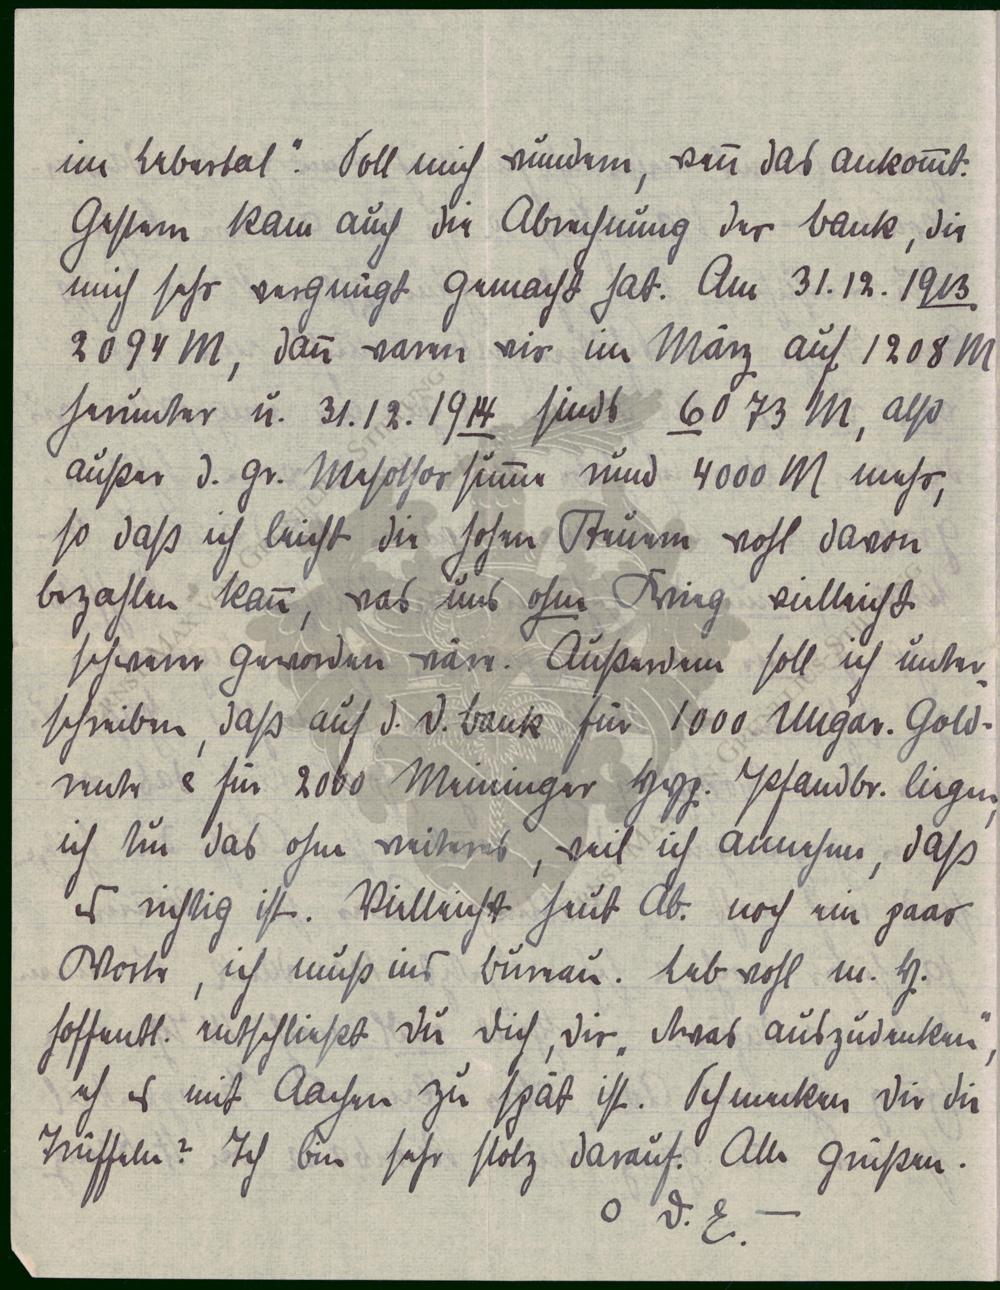 im Lebertal“. Soll mich wundern, wen̄ das ankom̄t.
Gestern kam auch die Abrechnung der Bank, die
mich sehr vergnügt gemacht hat. Am 31.12.1913
2094 M, dan̄ waren wir im März auf 1208 M
herunter u. 31.12.1914 sinds 6073 M, also
außer d. gr. sum̄e rund 4000 M mehr,
so daß ich leicht die hohen Steuern wohl davon
bezahlen kan̄, was uns ohne Krieg vielleicht
schwerer geworden wäre. Außerdem soll ich unter-
schreiben, daß auf d. D. Bank für 1000 Ungar. Gold-
rente & für 2000 Meininger Hyp. Pfandbr. liegen,
ich tue das ohne weiteres, weil ich annehme, daß
es richtig ist. Vielleicht heut Ab. noch ein paar
Worte, ich muß ins Bureau. Leb wohl m. H.
hoffentl. entschließt du dich, dir „etwas auszudenken“,
eh es mit Aachen zu spät ist. Schmecken dir die
Trüffeln? Ich bin sehr stolz darauf. Alle grüßen.
O D. E. —